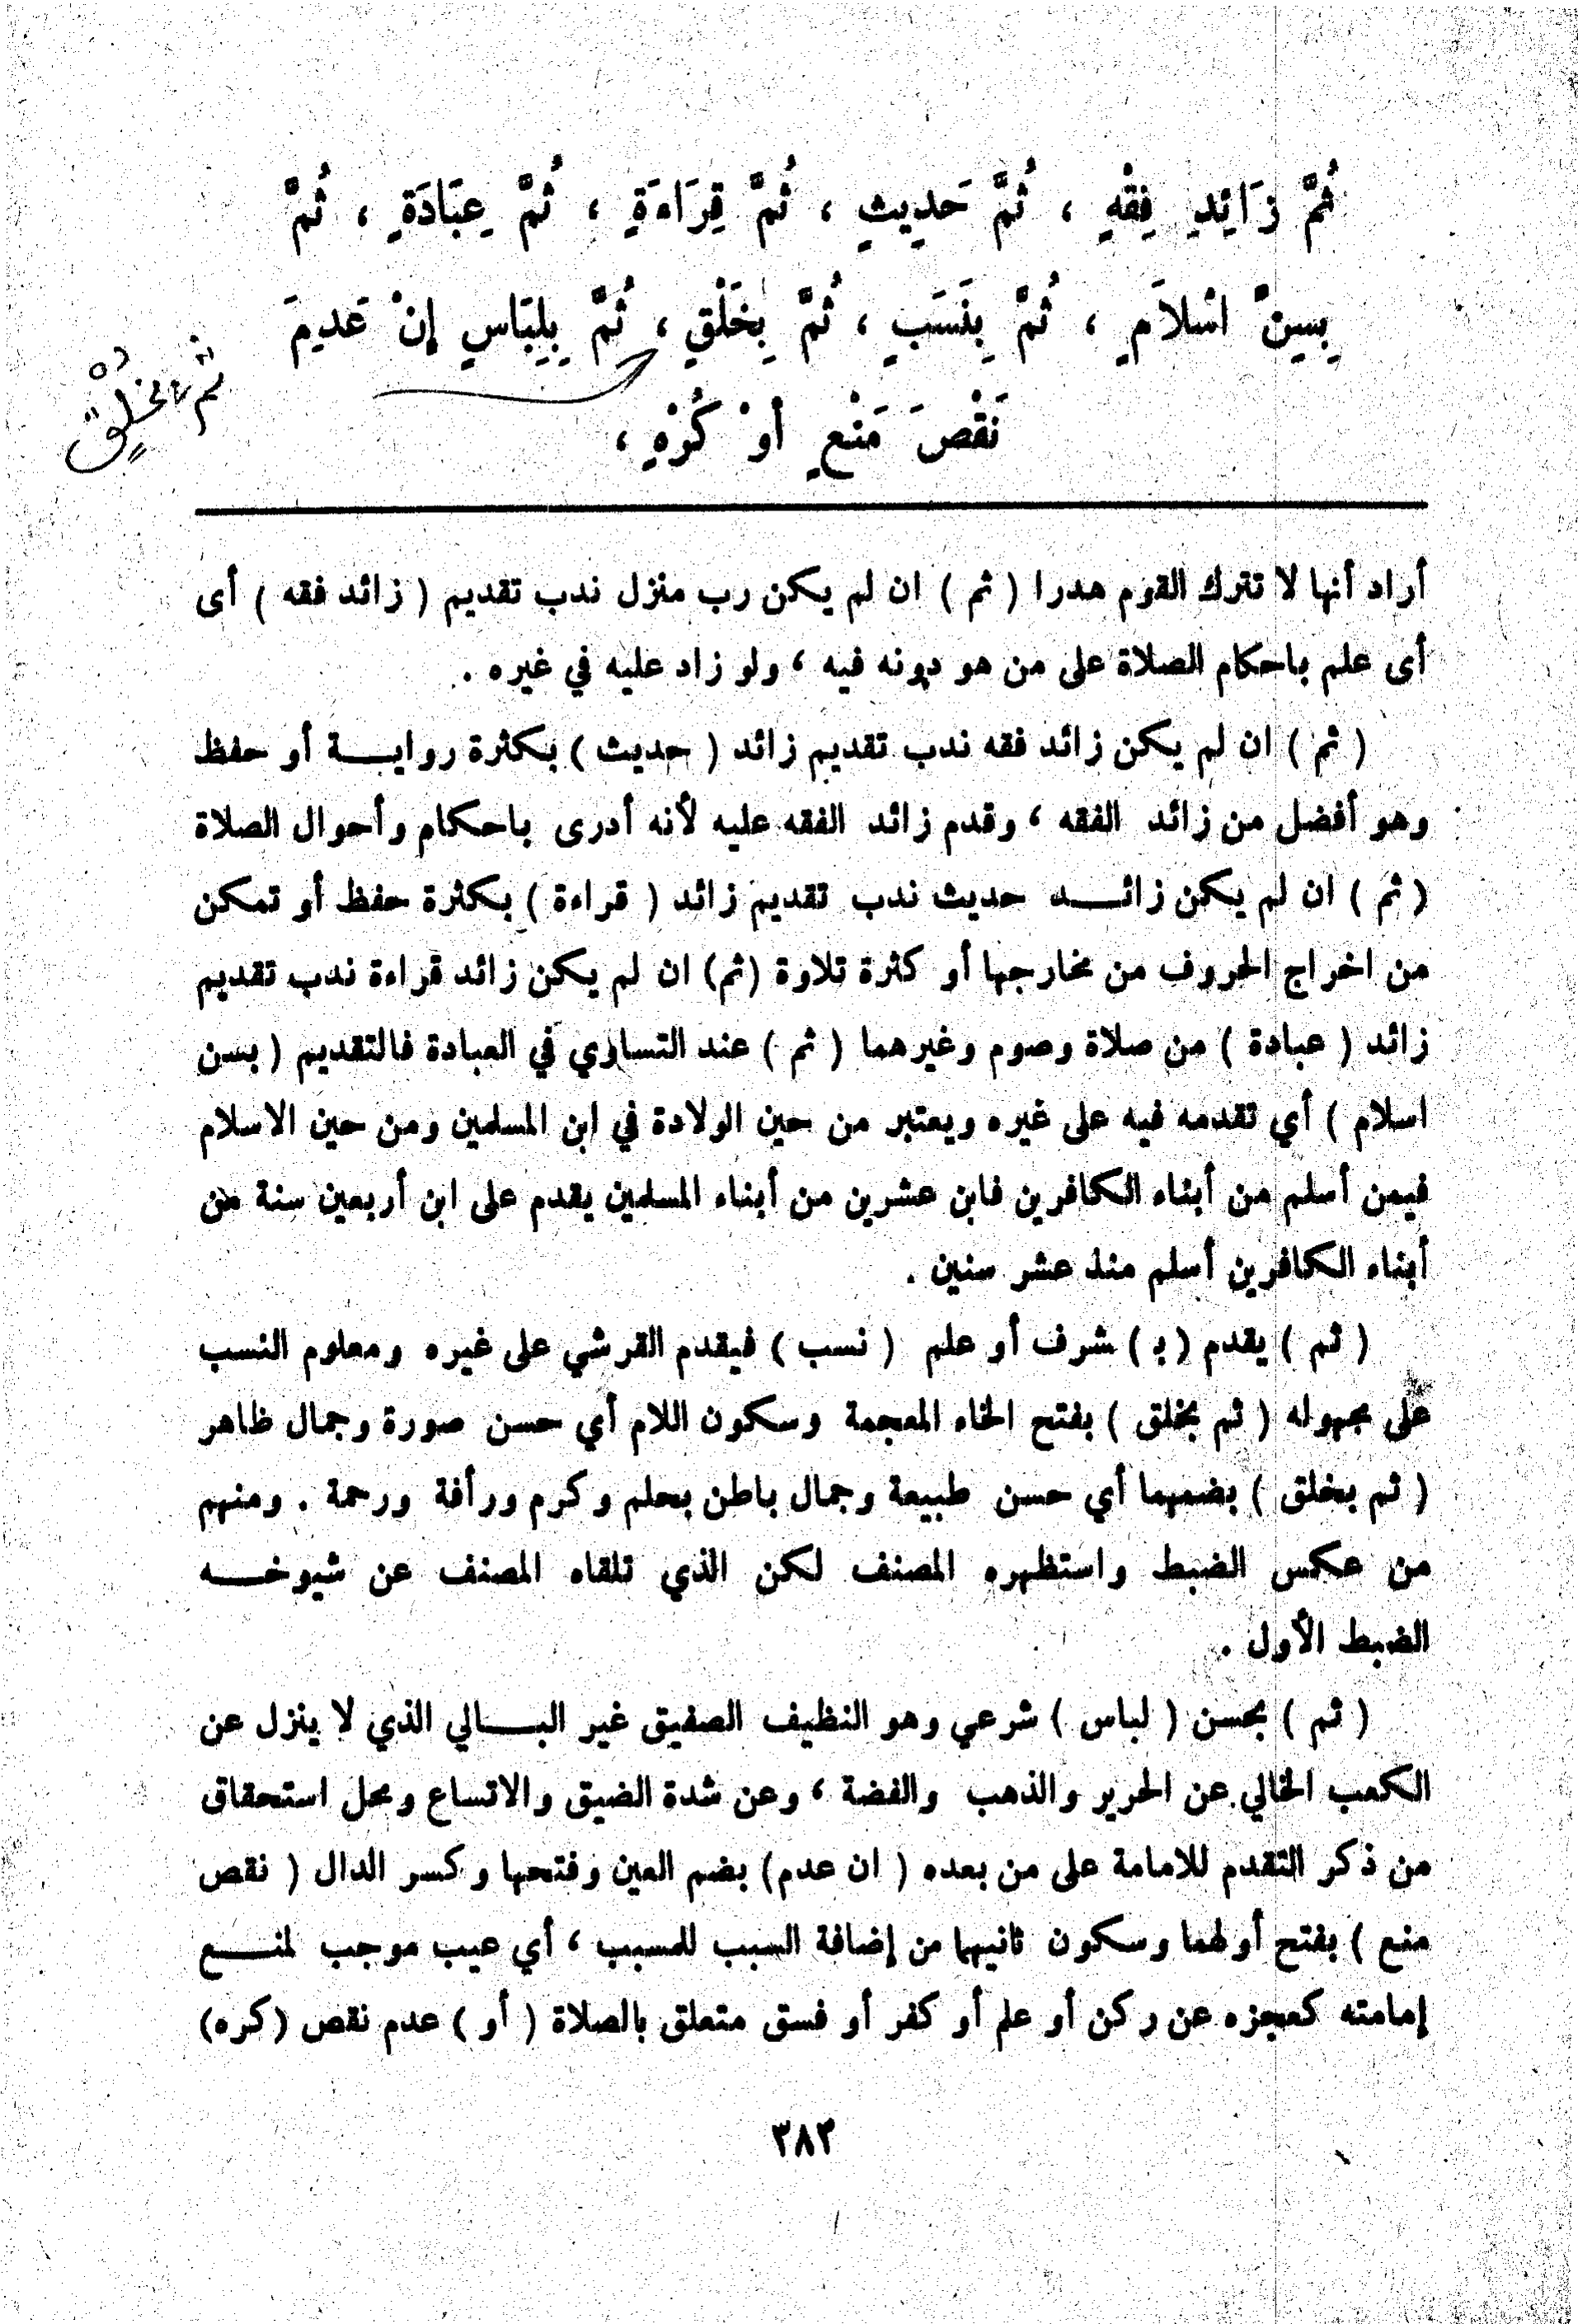 ثُمَّ زَائِدِ فِقْهٍ ، ثُمَّ حَدِيثٍ ، ثُمَّ قِرَاءَةٍ ، ثُمَّ عِبَادَةٍ ، ثُمَّ
بِسِنِّ اسْلاَمٍ ، ثُمَّ بِنَسَبٍ ، ثُمَّ بِخَلْقٍ ، ثُمَّ بِلِبَاسٍ إِنْ عَدِيمَ
ثم بخُلُقٍ
نَقْصَ مَنْعٍ أَوْ كُرْهٍ ،
أراد أنها لا تترك القوم هدرا ( ثم ) ان لم يكن رب منزل ندب تقديم ( زائد فقه ) أى
أى علم باحكام الصلاة على من هو دونه فيه ، ولو زاد عليه في غيره .
( ثم ) ان لم يكن زائد فقه ندب تقديم زائد ( حديث ) بكثرة روايـــة أو حفظ
وهو أفضل من زائد الفقه ، وقدم زائد الفقه عليه لأنه أدرى باحكام وأحوال الصلاة
( ثم ) ان لم يكن زائـــد حديث ندب تقديم زائد ( قراءة ) بكثرة حفظ أو تمكن
من اخراج الحروف من مخارجها أو كثرة تلاوة (ثم) ان لم يكن زائد قراءة ندب تقديم
زائد ( عبادة ) من صلاة وصوم وغيرهما ( ثم ) عند التساوي في العبادة فالتقديم ( بسن
اسلام ) أي تقدمه فيه على غيره ويعتبر من حين الولادة في ابن المسلمين ومن حين الاسلام
فيمن أسلم من أبناء الكافرين فابن عشرين من أبناء المسلمين يقدم على ابن أربعين سنة من
أبناء الكافرين أسلم منذ عشر سنين .
( ثم ) يقدم ( بـ ) شرف أو علم ( نسب ) فيقدم القرشي على غيره ومعلوم النسب
على مجهوله ( ثم بخلق ) بفتح الخاء المعجمة وسكون اللام أي حسن صورة وجمال ظاهر
( ثم بخلق ) بضمهما أي حسن طبيعة وجمال باطن بحلم وكرم ورأفة ورحمة . ومنهم
من عكس الضبط واستظهره المصنف لكن الذي تلقاه المصنف عن شيوخـــه
الضبط الأول .
( ثم ) بحسن ( لباس ) شرعي وهو النظيف الصفيق غير البـــالي الذي لا ينزل عن
الكعب الخالي عن الحرير والذهب والفضة ، وعن شدة الضيق والاتساع ومحل استحقاق
من ذكر التقدم للامامة على من بعده ( ان عدم) بضم العين وفتحها وكسر الدال ( نقص
منع ) بفتح أولهما وسكون ثانيهما من إضافة السبب للمسبب ، أي عيب موجب لمنـــع
إمامته كعجزه عن ركن أو علم أو كفر أو فسق متعلق بالصلاة ( أو ) عدم نقص (كره)
٣٨٣